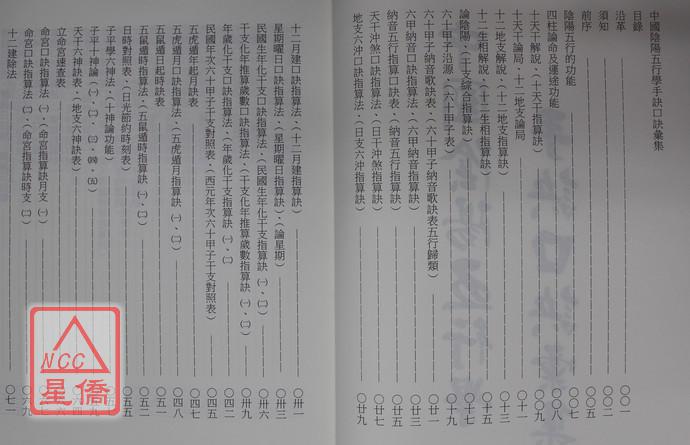 中國陰陽五行學手訣口訣彙集
目錄
沿革 ○○一
須知 ○○二
前序 ○○五
陰陽五行的功能 ○○七
四柱論命及運途功能 ○○九
十天干解說．（十天干指算訣） ○一○
十天干論局．十二地支論局 ○一一
十二地支解說．（十二地支指算訣） ○一三
十二生相解說．（十二生相指算訣） ○一五
論陰陽．（干支綜合指算訣） ○一七
六十甲子沿源．（六十甲子表） ○一九
六十甲子納音歌訣表．（六十甲子納音歌訣表五行歸類） ○廿一
六甲納音口訣指算法．（六甲納音指算訣） ○廿三
納音五行指算口訣表．（納音五行指算訣） ○廿五
天干沖煞口訣指算法．（日干沖煞指算訣） ○廿七
地支六沖口訣指算法．（日支六沖指算訣） ○廿九
十二月建口訣指算法．（十二月建指算訣） ○卅一
星期曜日口訣指算法．（星期曜日指算訣）．（論星期） ○卅三
民國生年化干支口訣指算法．（民國生年化干支指算訣㈠、㈡） ○卅六
干支化年推算歲數口訣指算法．（干支化年推算歲數指算訣㈠、㈡） ○卅九
年歲化干支口訣指算法．（年歲化干支指算訣㈠、㈡） ○四二
民國年次六十甲子干支對照表．（西元年次六十甲子干支對照表） ○四四
五虎遁年起月訣表 ○四七
五虎遁月口訣指算法．（五虎遁月指算訣㈠、㈡） ○四八
五鼠遁日起時訣表 ○五一
五鼠遁時口訣指算法．（五鼠遁時指算訣㈠、㈡） ○五二
日時對照表．（日光節約時刻表） ○五五
子平學六神法．（十神論功能）
子平十神論㈠、㈡、㈢、㈣、㈤
天干十六神訣表．（地支六神訣表）
立命宮速查表
命宮口訣指算法㈠．（命宮指算訣月支㈠）
命宮口訣指算法㈡．（命宮指算訣時支㈡） ○六九
十二建除法 ○七一
NCC
星僑